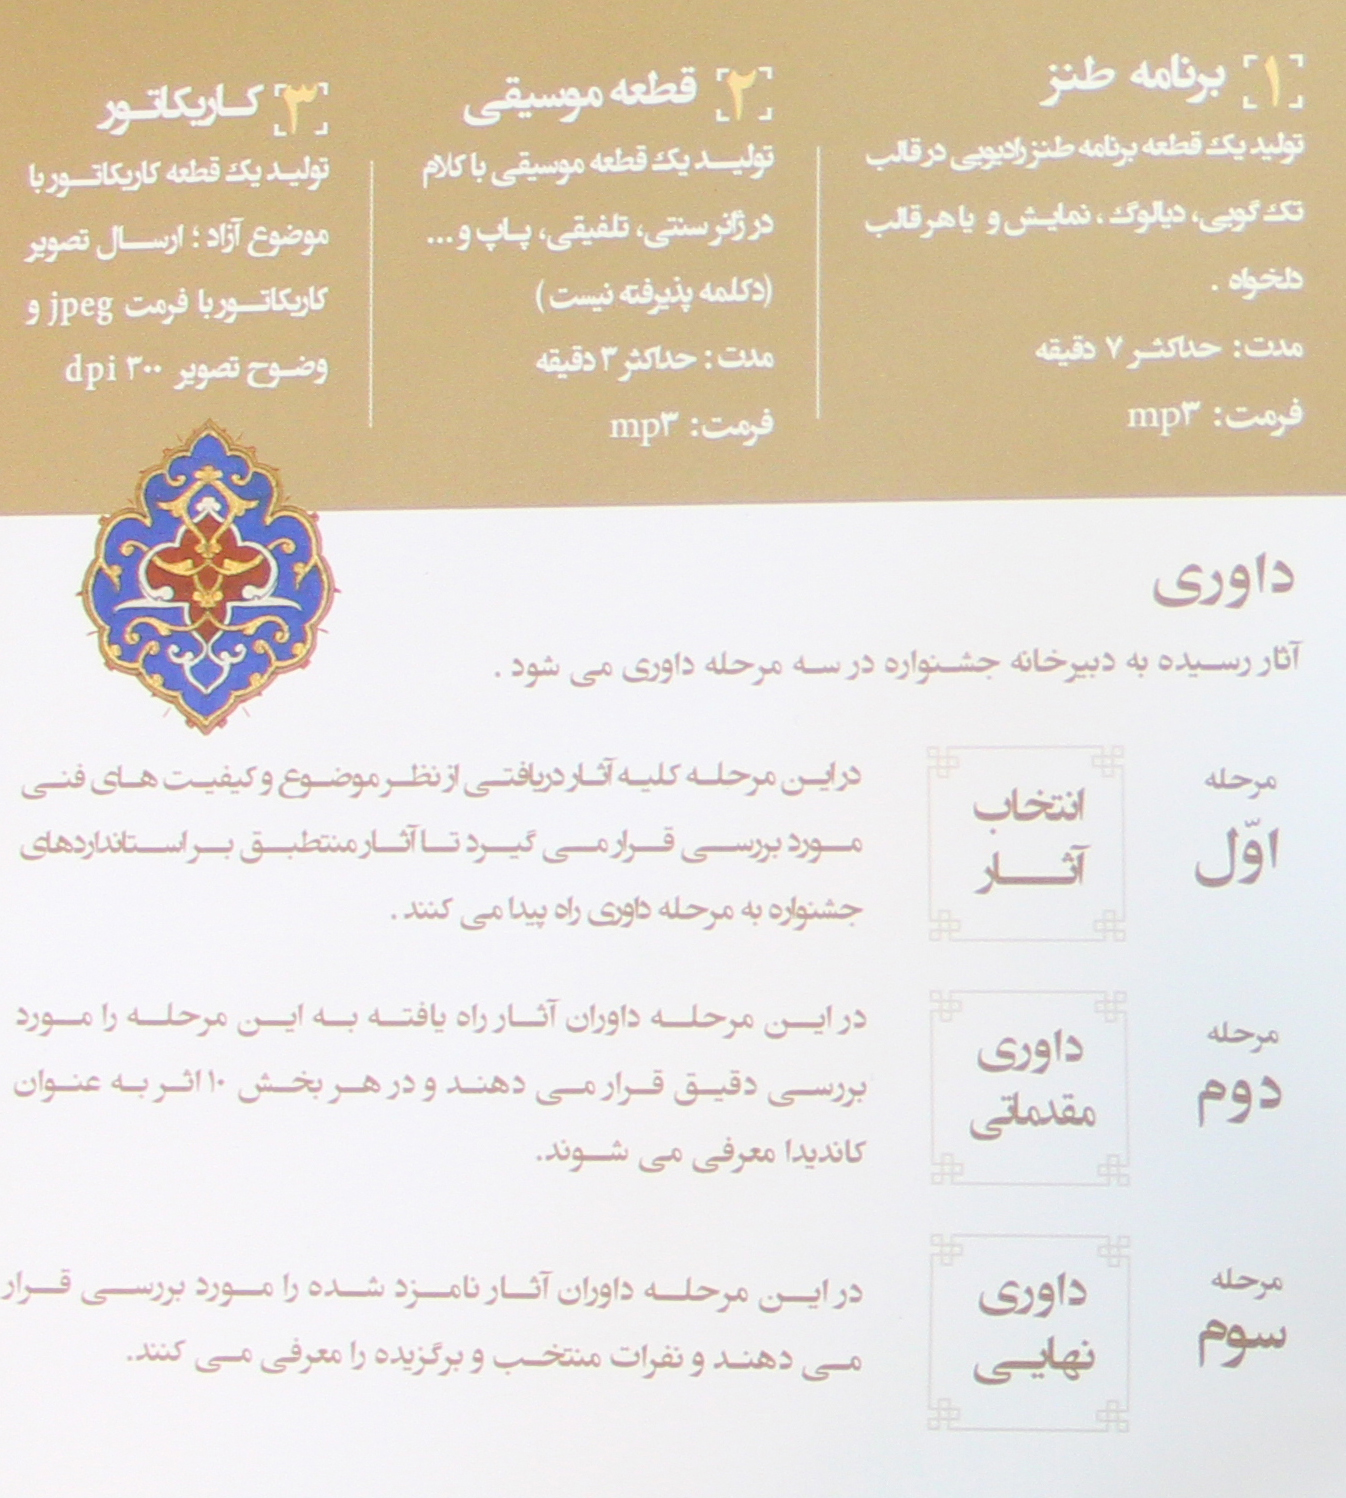 ۱ برنامه طنز
تولید یک قطعه برنامه طنز رادیویی در قالب
تک گویی، دیالوگ، نمایش و یا هر قالب
دلخواه .
مدت: حداکثر ۷ دقیقه
فرمت: mp۳
۲ قطعه موسیقی
تولید یک قطعه موسیقی با کلام
در ژانر سنتی، تلفیقی، پاپ و ...
(دکلمه پذیرفته نیست)
مدت: حداکثر ۳ دقیقه
فرمت: mp۳
۳ کاریکاتور
تولید یک قطعه کاریکاتور با
موضوع آزاد ؛ ارسال تصویر
کاریکاتور با فرمت jpeg و
وضوح تصویر ۳۰۰ dpi
داوری
آثار رسیده به دبیرخانه جشنواره در سه مرحله داوری می شود .
مرحله
اوّل
انتخاب
آثار
در این مرحله کلیه آثار دریافتی از نظر موضوع و کیفیت های فنی
مورد بررسی قرار می گیرد تا آثار منتطبق بر استانداردهای
جشنواره به مرحله داوری راه پیدا می کنند .
مرحله
دوم
داوری
مقدماتی
در این مرحله داوران آثار راه یافته به این مرحله را مورد
بررسی دقیق قرار می دهند و در هر بخش ۱۰ اثر به عنوان
کاندیدا معرفی می شوند.
مرحله
سوم
داوری
نهایی
در این مرحله داوران آثار نامزد شده را مورد بررسی قرار
می دهند و نفرات منتخب و برگزیده را معرفی می کنند.